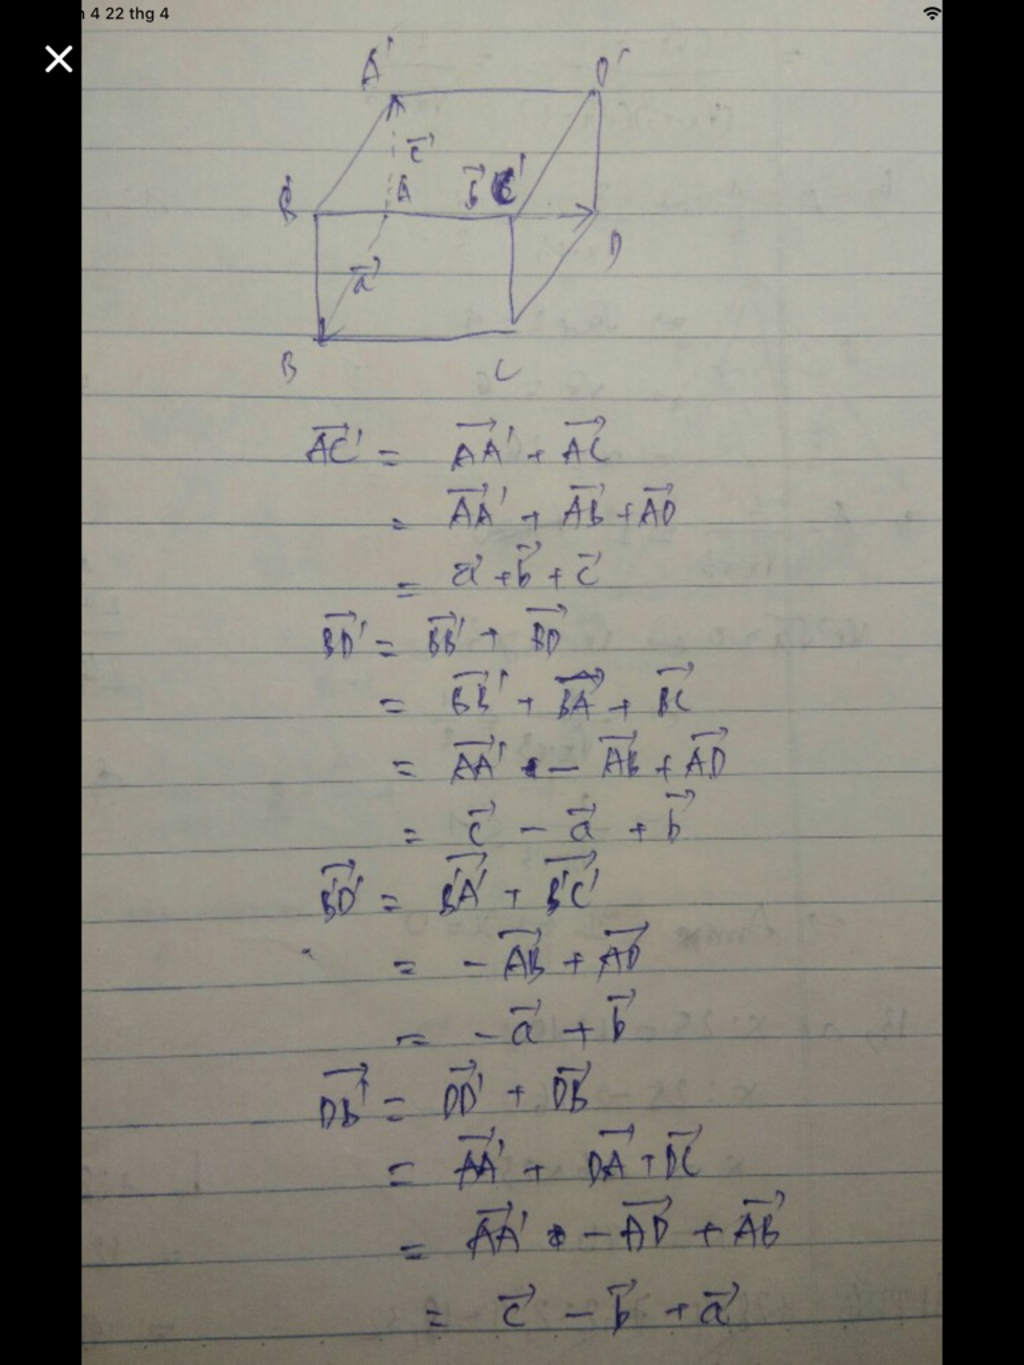 4 22 thg 4
A' D'
c⃗
B' A b⃗ C'
D
a⃗
B C
A͞C͞'⃗ = AA'⃗ + AC⃗
= AA'⃗ + AB⃗ + AD⃗
= a⃗ + b⃗ + c⃗
BD'⃗ = BB'⃗ + BD⃗
= BB'⃗ + BA⃗ + BC⃗
= AA'⃗ - AB⃗ + AD⃗
= c⃗ - a⃗ + b⃗
B'D'⃗ = B'A'⃗ + B'C'⃗
= - AB⃗ + AD⃗
= - a⃗ + b⃗
DB'⃗ = DD'⃗ + DB⃗
= AA'⃗ + DA⃗ + DC⃗
= AA'⃗ - AD⃗ + AB⃗
= c⃗ - b⃗ + a⃗